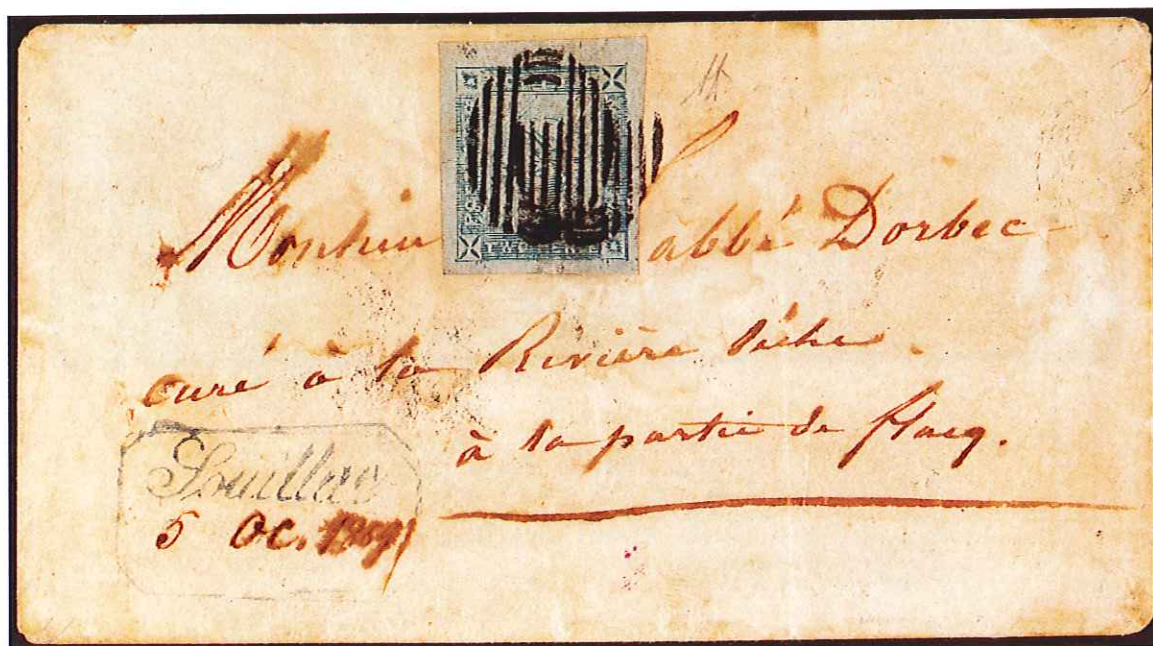 TWO PENCE
Monsieur L'abbé Dorbec
curé à la Rivière Sèche.
à la partie de flacq.
Souillac
5 Oc. 1859